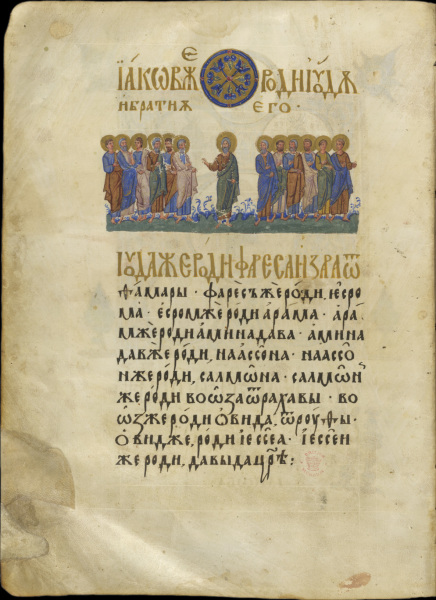 Їа́кѡвже роди Їꙋдѫ
и братиѧ его ·
Їꙋдаже роди фареса и зара ѿ
ѳамары · фаресъже роди, есро
ма · есромже роди арама · ара
мже роди аминадава · амина
давже роди, наассона · наассо
нже роди, салмѡна · салмѡн
же роди вооза ѿ рахавы · во
озже роди овида, ѿ роуѳы ·
овидже, роди іессеа · іессеи
же роди, давыда цр҃ѣ :